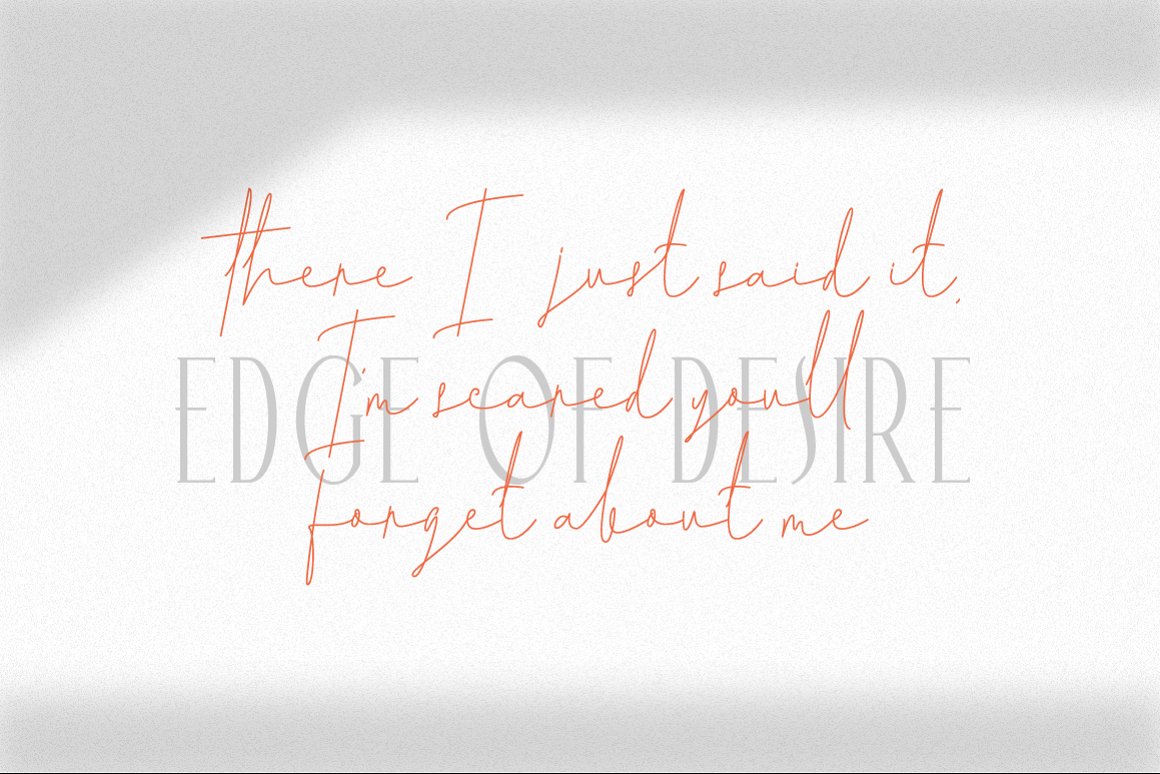 there I just said it,
I'm scared you'll
EDGE OF DESIRE
forget about me